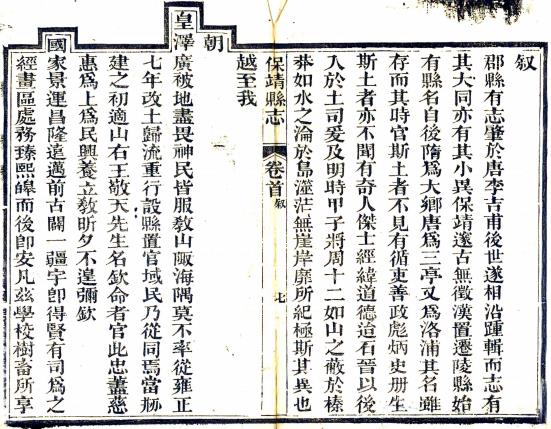 叙
郡縣有志肇於唐李吉甫後世遂相沿踵輯而志有
其大同亦有其小異保靖邃古無徵漢置遷陵縣始
有縣名自後隋爲大鄉唐爲三亭又爲洛浦其名雖
存而其時官斯土者不見有循吏善政彪炳史册生
斯土者亦不聞有奇人傑士經緯道德迨石晉以後
入於土司爰及明時甲子將周十二如山之蔽於榛
莽如水之淪於島濴茫無崖岸靡所紀極斯其異也
保靖縣志
卷首
叙
七
越至我
朝
皇澤廣被地盡畏神民皆服教山陬海隅莫不率從雍正
七年改土歸流重行設縣置官域民乃從同焉當刱
建之初適山右王敬天先生名欽命者官此忠藎慈
惠爲上爲民興養立教昕夕不遑彌欽
國家景運昌隆遠邁前古闢一疆宇卽得賢有司爲之
經畫區處務臻熙皞而後卽安凡兹學校樹畜所享